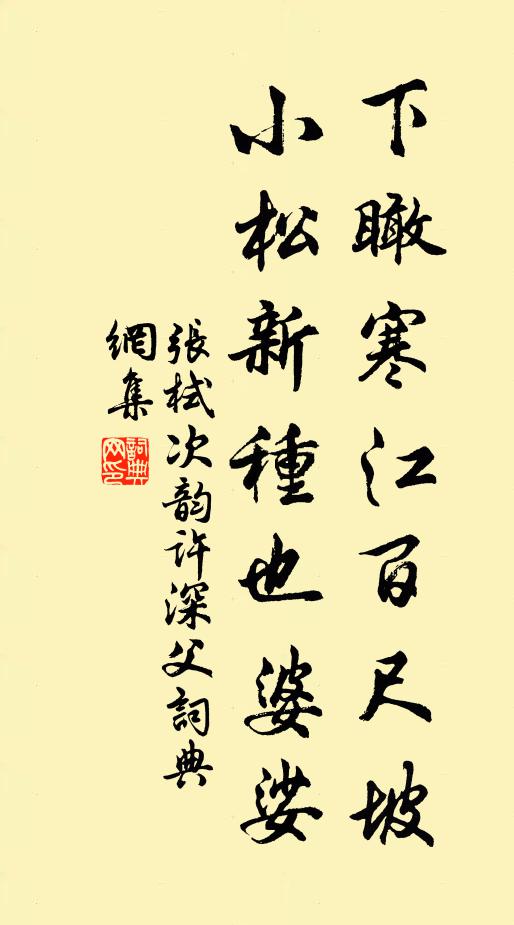 下瞰寒江百尺坡
小松新種也婆娑
張栻次韵许深父詞典
網集
詞典
网印